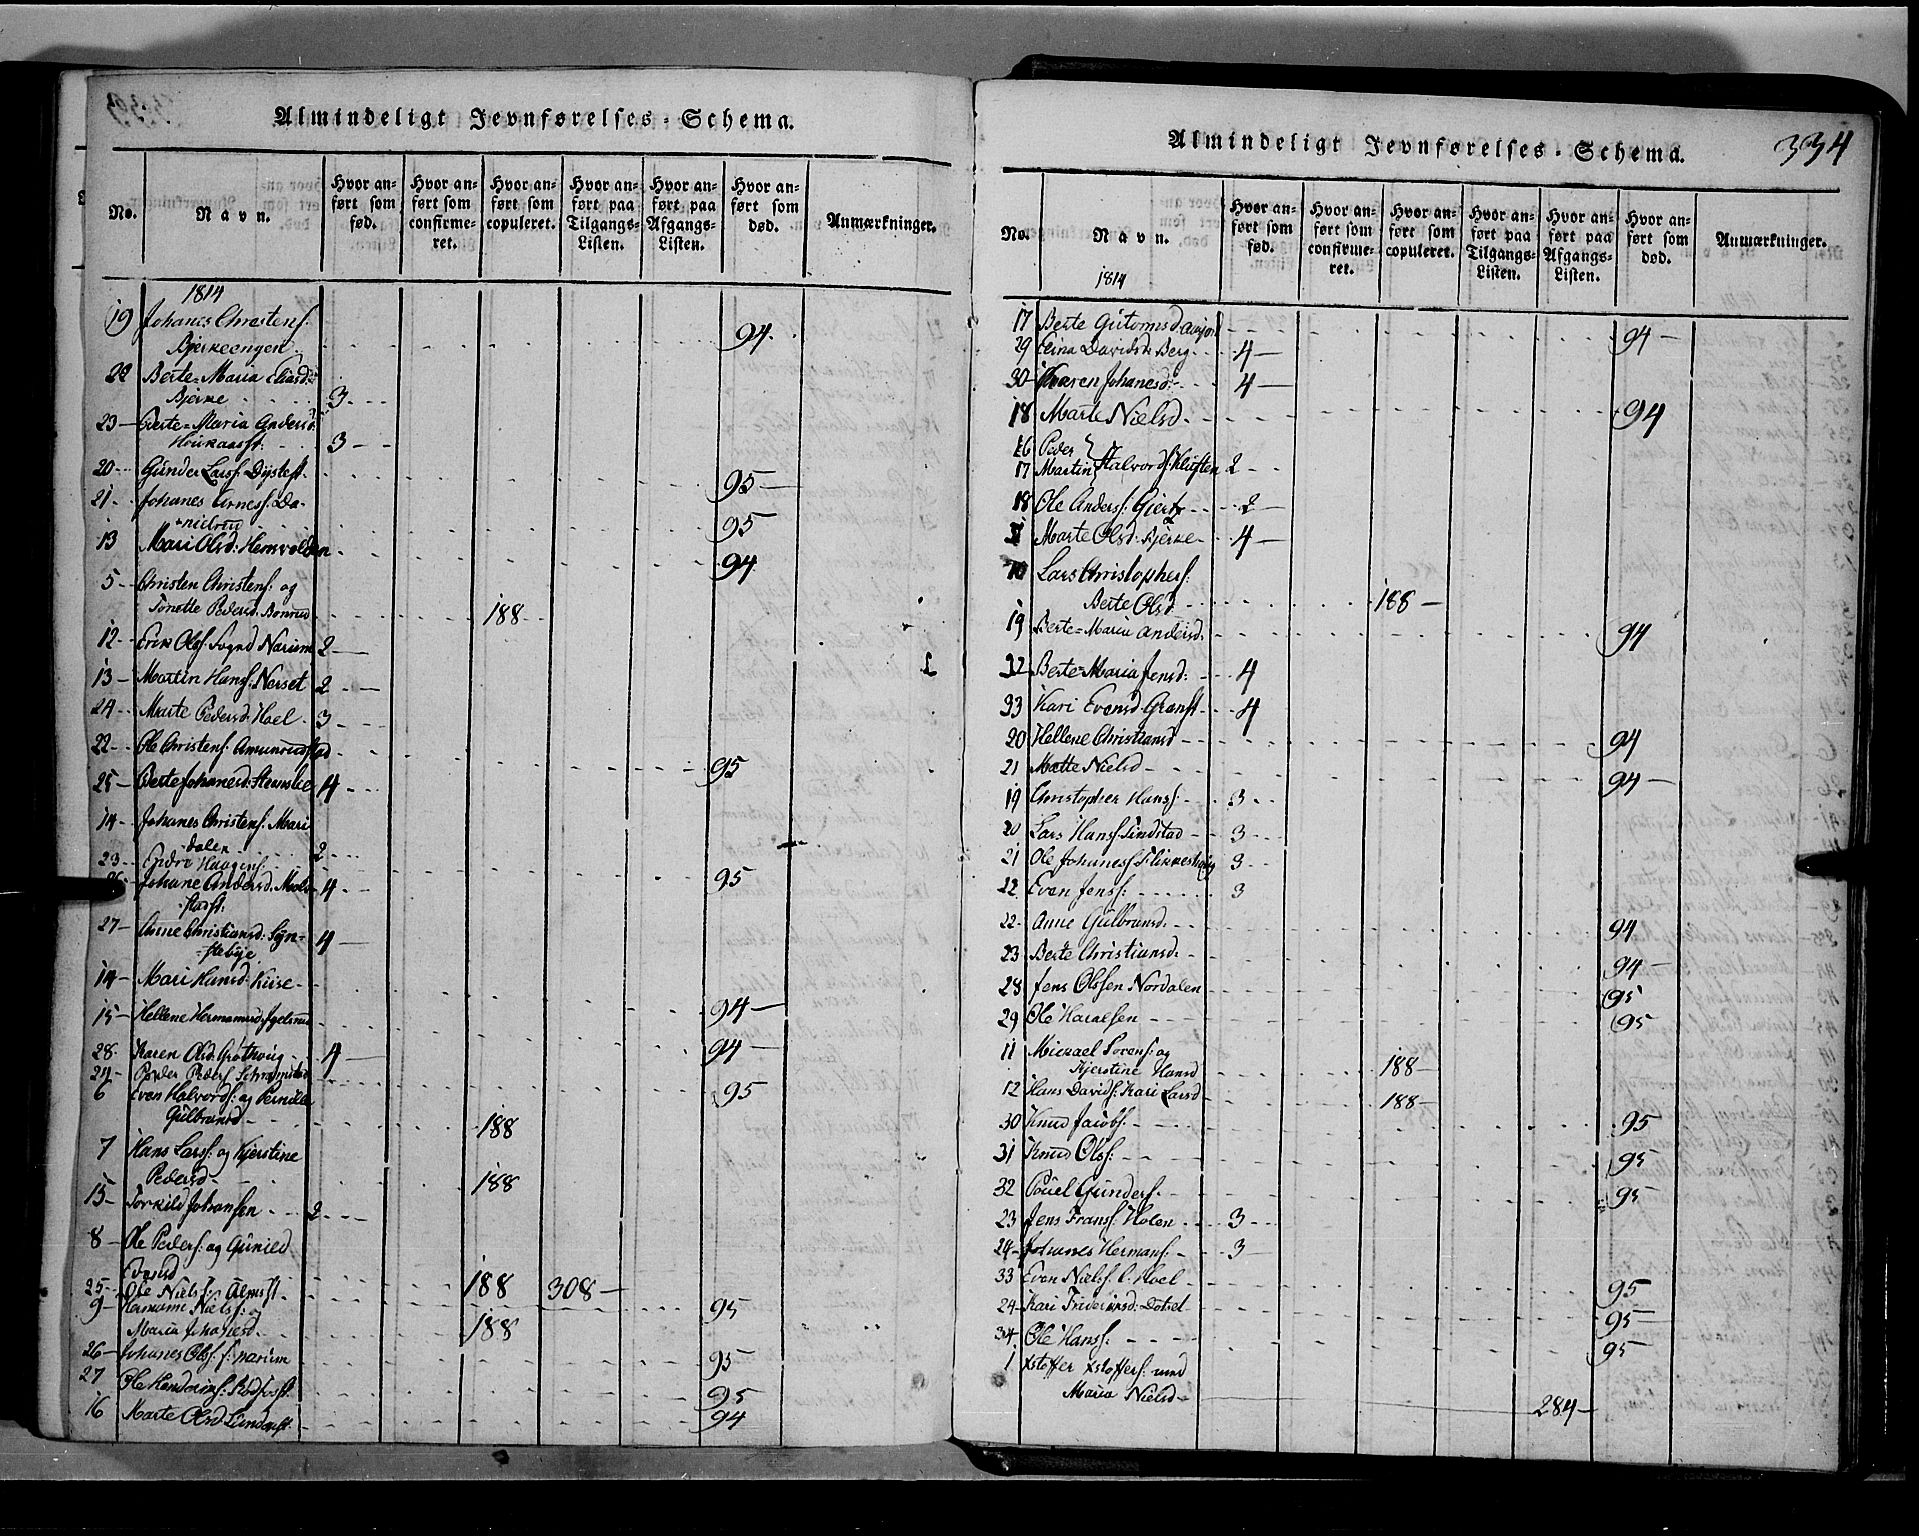 Almindeligt Jevnførelses-Schema.
No.
Navn.
Hvor an-
ført som
fød.
Hvor an-
ført som
confirme-
ret.
Hvor an-
ført som
copuleret.
Hvor an-
ført paa
Tilgangs-
Listen.
Hvor an-
ført paa
Afgangs-
Listen.
Hvor an-
ført som
død.
Anmærkninger.
1814
19 Johanes Christens:
Bjerkeengen 94.
22 Berte-Maria Eliasd:
Bjerke 3
23 Berte-Maria Andersd:
3
20 Gunder Larsf. 95
21 Johanes Arness: Da-
nielrud 95
13 Mari Olsd: Hemsvolden 94
5 Christen Christens: og
Tonette Pedersd: 188
12 Erik Olsf: Narum 2
13 Martin Hansf: Nerset 2
24 Marte Pedersd: Hoel 3
22 Ole Christens: Amunrudstad 95
25 Berte Johanesd: 4
14 Johanes Christens: Mari-
dalen 2
23 Endre Haagens: 95
26 Johane Andersd: 4
27 Anne Christiansd: Syn-
stebye 4
14 Mari Hansd: Kiise 94
15 Hellene 94
28 Karen Olsd: 4
24 Peder Peders: Schramstad 95
6 Even Halvords: og Pernille
Gulbransd 188
7 Hans Larsf: og Kjerstine
Pedersd 188
15 Torkild Johansen 2
8 Ole Peders: og Gunild
Evensd 188 308
25 Ole Nielsf: Almsst. 95
9 Hermann Nielsf: og
Maria Johanesd. 188
26 Johanes Olsf. Narum 95
27 Ole 95
16 Marte Olsd 94
Almindeligt Jevnførelses-Schema.
334
No.
Navn.
Hvor an-
ført som
fød.
Hvor an-
ført som
confirme-
ret.
Hvor an-
ført som
copuleret.
Hvor an-
ført paa
Tilgangs-
Listen.
Hvor an-
ført paa
Afgangs-
Listen.
Hvor an-
ført som
død.
Anmærkninger.
1814
17 Berte Gutormsd 94
29 Elina Davidsd: Berg 4
30 Karen Johanesd: 4
18 Marte Nielsd 94
16 Peder
17 Martin Halvords: Kluften 2
18 Ole Anders: 2
Marte Olsd: Bjerke 4
10 Lars Christophers:
Berte Olsd 188
19 Berte-Maria Andersd. 94
32 Berte-Maria Jensd: 4
33 Kari Evensd 4
20 Hellene Christiansd 94
21 Mette Nielsd 94
19 Christopher Hansf. 3
20 Lars Hansf. Sindstad 3
21 Ole Johanesf. 3
22 Even Jensf: 3
22 Anne Gulbransd. 94
23 Berte Christiansd. 94
28 Jens Olssen Nordalen 95
29 Ole 95
11 Mickael Sorens: og
Kjerstine Hansd 188
12 Hans Davids: Kari Larsd 188
30 Knud Jacobs: 95
31 Knud Olsf: 95
32 Pouel Gunders. 95
23 Jens Fransf: Holen 3
24 Johanes Hermans: 3
33 Even Nielsf. Hoel 95
24 Kari 95
34 Ole Hansf: 95
1 Xstoffer Xstoffers: med
Maria Nielsd 284